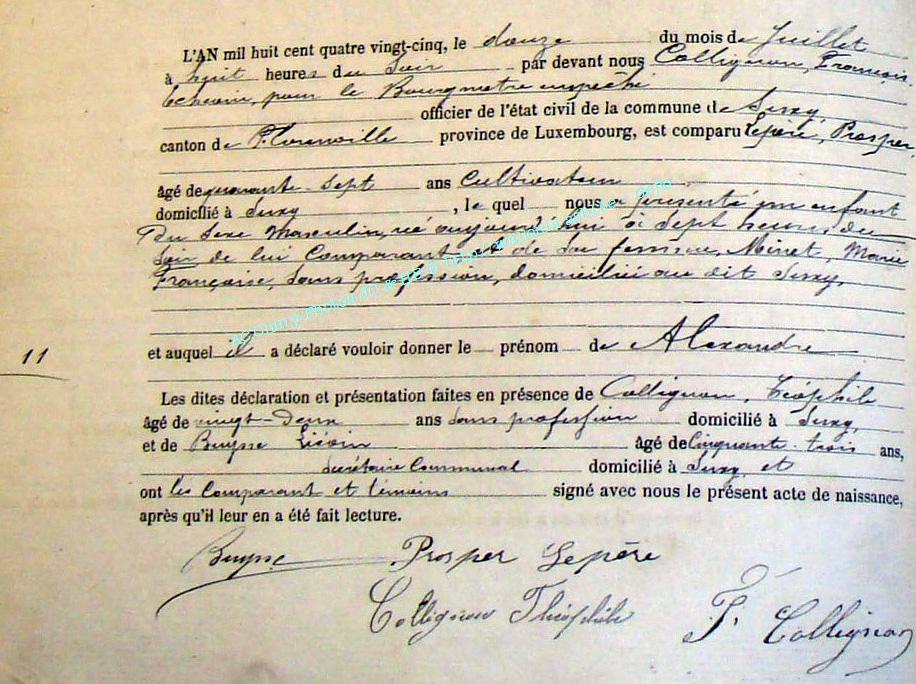 L'AN mil huit cent quatre vingt-cinq, le douze du mois de Juillet
à huit heures du Soir par devant nous Collignon, François
Echevin, pour le Bourgmestre empêché
officier de l'état civil de la commune de Suxy,
canton de Florenville province de Luxembourg, est comparu Lepère, Prosper
âgé de quarante-sept ans Cultivateur
domicilié à Suxy, lequel nous a présenté un enfant
Du Sexe Masculin, né aujourd'hui à Sept heures du
Soir de lui Comparant et de Sa femme, Minet, Marie
Françoise, Sans profession, domiciliée au dit Suxy,
11
et auquel il a déclaré vouloir donner le prénom de Alexandre
Les dites déclaration et présentation faites en présence de Collignon, Téophile
âgé de vingt-deux ans Sans profession domicilié à Suxy,
et de Buysse Liévin âgé de Cinquante-trois ans,
Secrétaire Communal domicilié à Suxy, et
ont les Comparant et témoins signé avec nous le présent acte de naissance,
après qu'il leur en a été fait lecture.
Buysse Prosper Lepère
Collignon Théophile F. Collignon